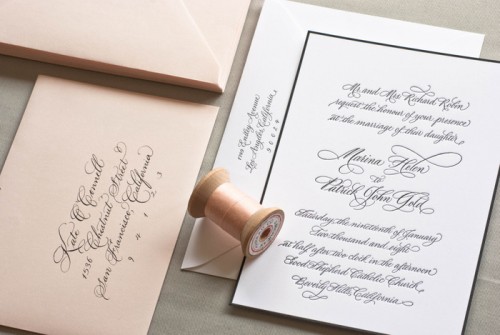 Kate O'Connell
1536 Chestnut Street
San Francisco, California
94123
Los Angeles, California
90082
Mr. and Mrs. Richard
request the honour of your presence
at the marriage of their daughter
Marina Helen
to
Patrick John Gold
Saturday, the nineteenth of January
Two thousand and eight
at half after two clock in the afternoon
Good Shepherd Catholic Church
Beverly Hills, California